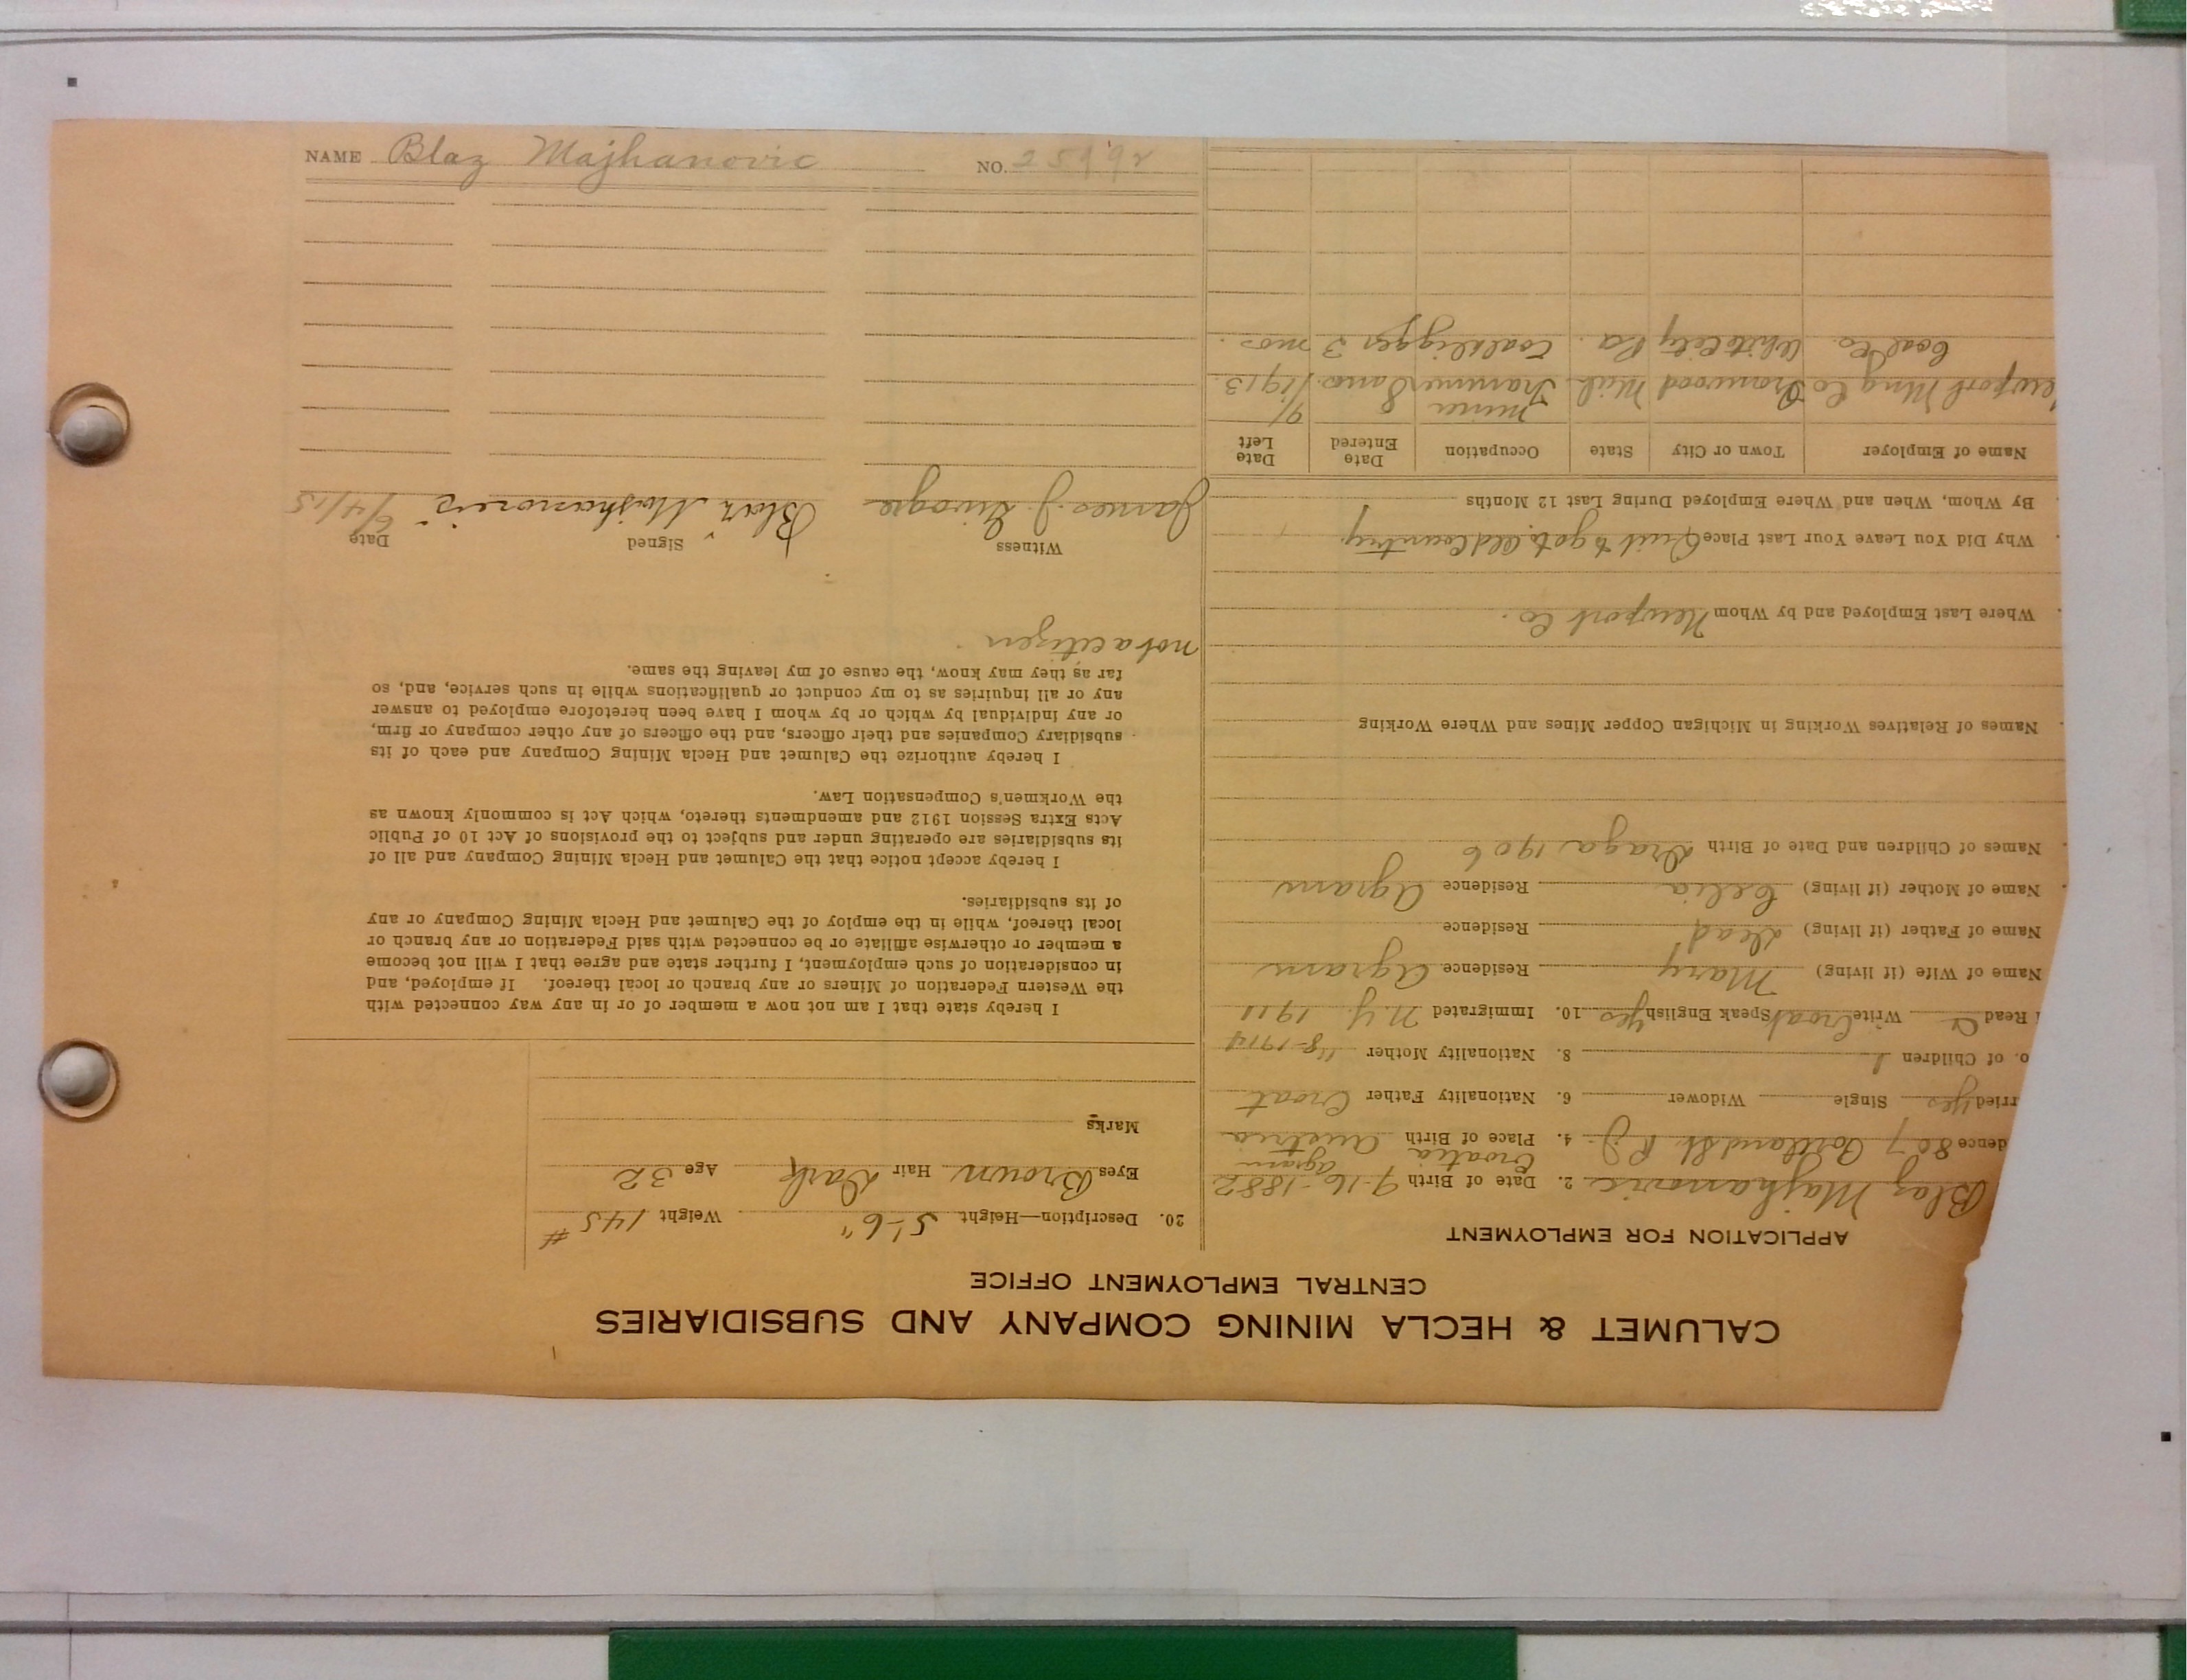 NAME Blaz Majhanovic NO.
CALUMET & HECLA MINING COMPANY AND SUBSIDIARIES
CENTRAL EMPLOYMENT OFFICE
APPLICATION FOR EMPLOYMENT
Blaz Majhanovic 2. Date of Birth 9-16-1882
Croatia Agram
dence 807 Portland St. R.J. 4. Place of Birth Austria
rried yes Single Widower 6. Nationality Father Croat
o. of Children 1 8. Nationality Mother 1/8-1914
Read Write Croat Speak English yes 10. Immigrated N.Y. 1911
Name of Wife (if living) Mary Residence Agram
Name of Father (if living) dead Residence
Name of Mother (if living) Celia Residence Agram
Names of Children and Date of Birth Draga 1906
Names of Relatives Working in Michigan Copper Mines and Where Working
Where Last Employed and by Whom Newport Co.
Why Did You Leave Your Last Place Quit to go to Old Country
By Whom, When and Where Employed During Last 12 Months
Name of Employer Town or City State Occupation Date Entered Date Left
miner 9/
ewport Mng Co Ironwood Mich Trammer 8 mos. 1913
Coal Co. White City Pa. Coal digger 3 mos.
20. Description—Height 5'-6" Weight 145 #
Eyes Brown Hair Dark Age 32
Marks
I hereby state that I am not now a member of or in any way connected with
the Western Federation of Miners or any branch or local thereof. If employed, and
in consideration of such employment, I further state and agree that I will not become
a member or otherwise affiliate or be connected with said Federation or any branch or
local thereof, while in the employ of the Calumet and Hecla Mining Company or any
of its subsidiaries.
I hereby accept notice that the Calumet and Hecla Mining Company and all of
its subsidiaries are operating under and subject to the provisions of Act 10 of Public
Acts Extra Session 1912 and amendments thereto, which Act is commonly known as
the Workmen's Compensation Law.
I hereby authorize the Calumet and Hecla Mining Company and each of its
subsidiary Companies and their officers, and the officers of any other company or firm,
or any individual by which or by whom I have been heretofore employed to answer
any or all inquiries as to my conduct or qualifications while in such service, and, so
far as they may know, the cause of my leaving the same.
not a citizen
Witness Signed Date
James J. Blaz Majhanovic 6/4/15